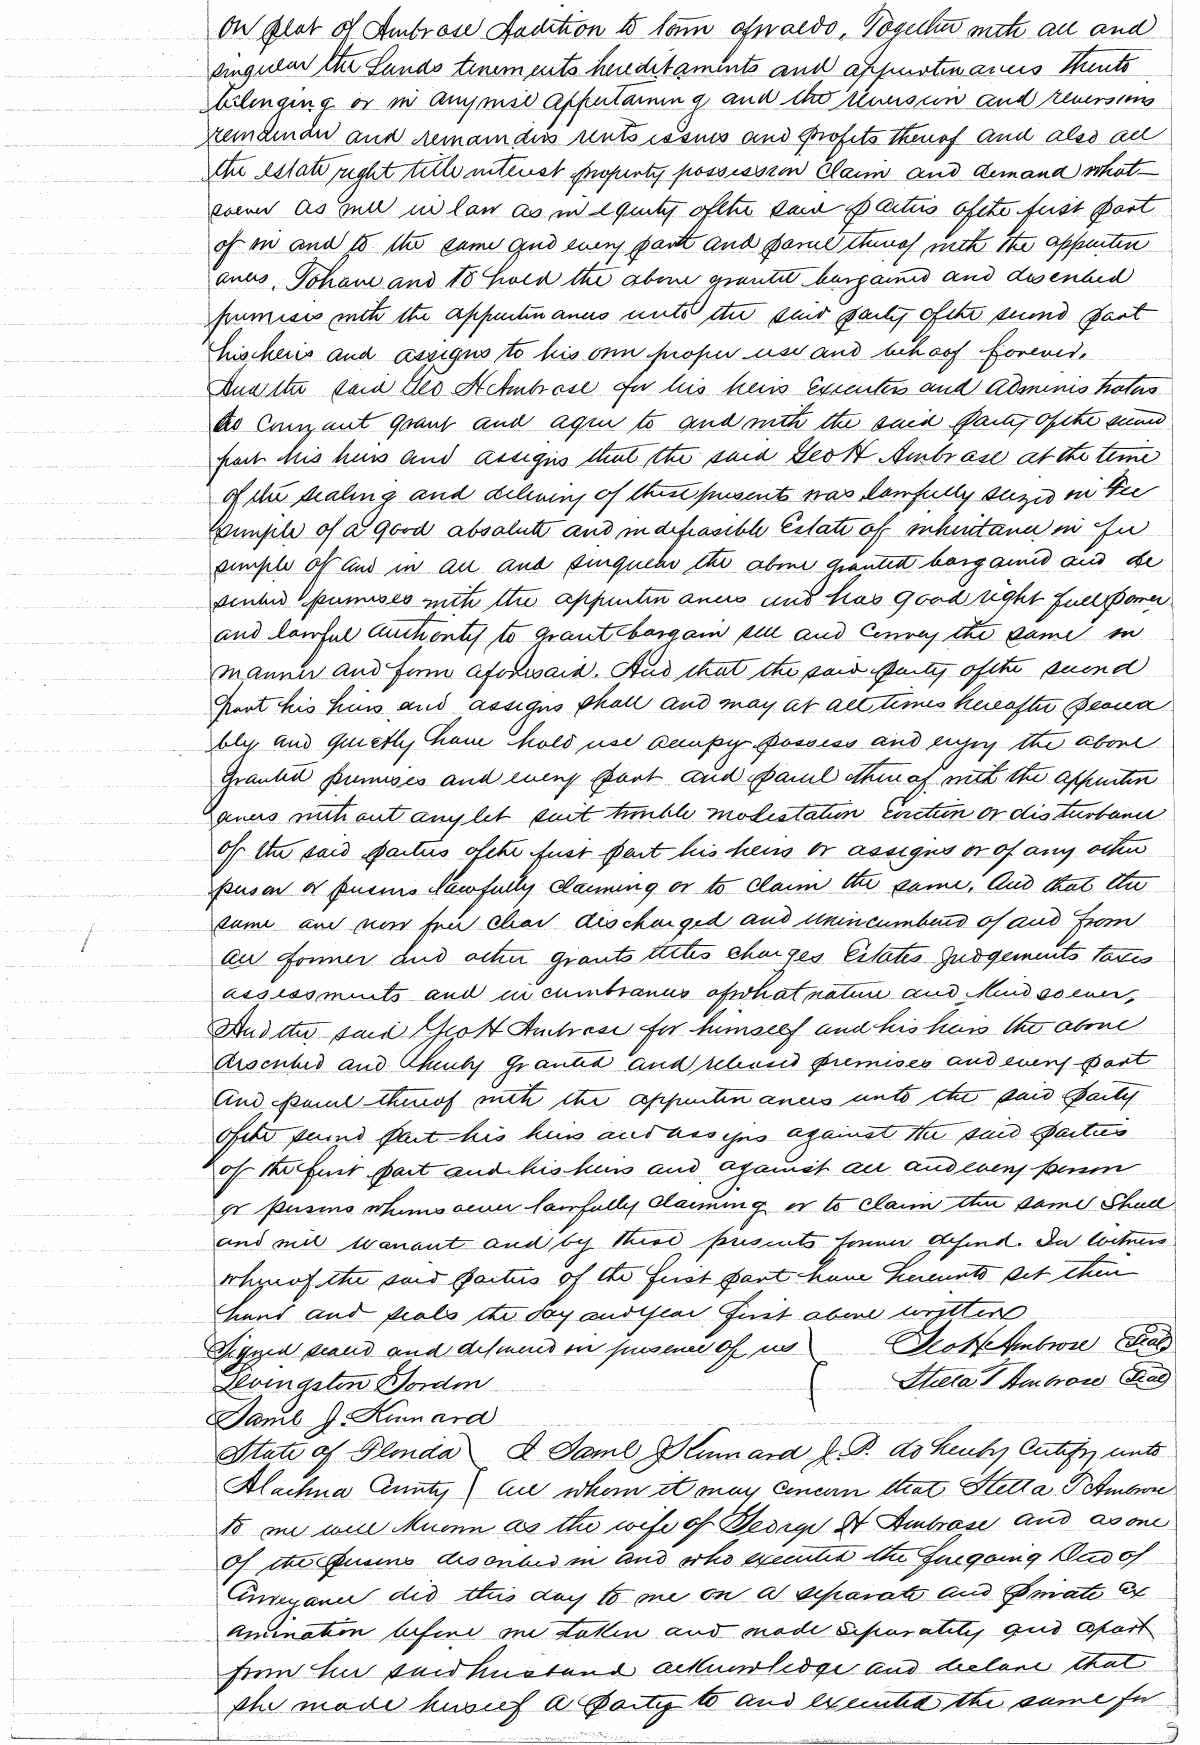 on plat of Ambrose Addition to town of Waldo. Together with all and
singular the Lands tenements hereditaments and appurtenances thereto
belonging or in anywise appertaining and the reversion and reversions
remainder and remainders rents issues and profits thereof and also all
the estate right title interest property possession Claim and demand what-
soever as well in law as in equity of the said parties of the first part
of in and to the same and every part and parcel thereof with the appurten
ances. To have and to hold the above granted bargained and described
premises with the appurtenances unto the said party of the second part
his heirs and assigns to his own proper use and behoof forever.
And the said Geo H Ambrose for his heirs Executors and Administrators
do Covenant grant and agree to and with the said party of the second
part his heirs and assigns that the said Geo H Ambrose at the time
of the sealing and delivery of these presents was lawfully seized in Fee
simple of a good absolute and indefeasible Estate of inheritance in fee
simple of and in all and singular the above granted bargained and de
scribed premises with the appurtenances and has good right full power
and lawful authority to grant bargain sell and Convey the same in
manner and form aforesaid. And that the said party of the second
part his heirs and assigns shall and may at all times hereafter peacea
bly and quietly have hold use occupy possess and enjoy the above
granted premises and every part and parcel thereof with the appurten
ances without any let suit trouble molestation Eviction or disturbance
of the said parties of the first part his heirs or assigns or of any other
person or persons lawfully claiming or to claim the same. And that the
same are now free clear discharged and unincumbered of and from
all former and other grants titles charges Estates Judgements taxes
assessments and incumbrances of what nature and Kind soever,
And the said Geo H Ambrose for himself and his heirs the above
described and hereby granted and released premises and every part
and parcel thereof with the appurtenances unto the said party
of the second part his heirs and assigns against the said parties
of the first part and his heirs and against all and every person
or persons whomsoever lawfully claiming or to claim the same Shall
and will warrant and by these presents forever defend. In Witness
whereof the said parties of the first part have hereunto set their
hand and seals the day and year first above written
Signed sealed and delivered in presence of us Geo H Ambrose Seal
Levingston Gordon Stella T Ambrose Seal
Saml J. Kinnard
State of Florida I Saml J Kinnard J. P. do hereby Certify unto
Alachua County all whom it may Concern that Stella T Ambrose
to me well Known as the wife of George H Ambrose and as one
of the persons described in and who executed the foregoing Deed of
Conveyance did this day to me on a separate and private ex
amination before me taken and made separately and apart
from her said husband acknowledge and declare that
she made herself a party to and executed the same for